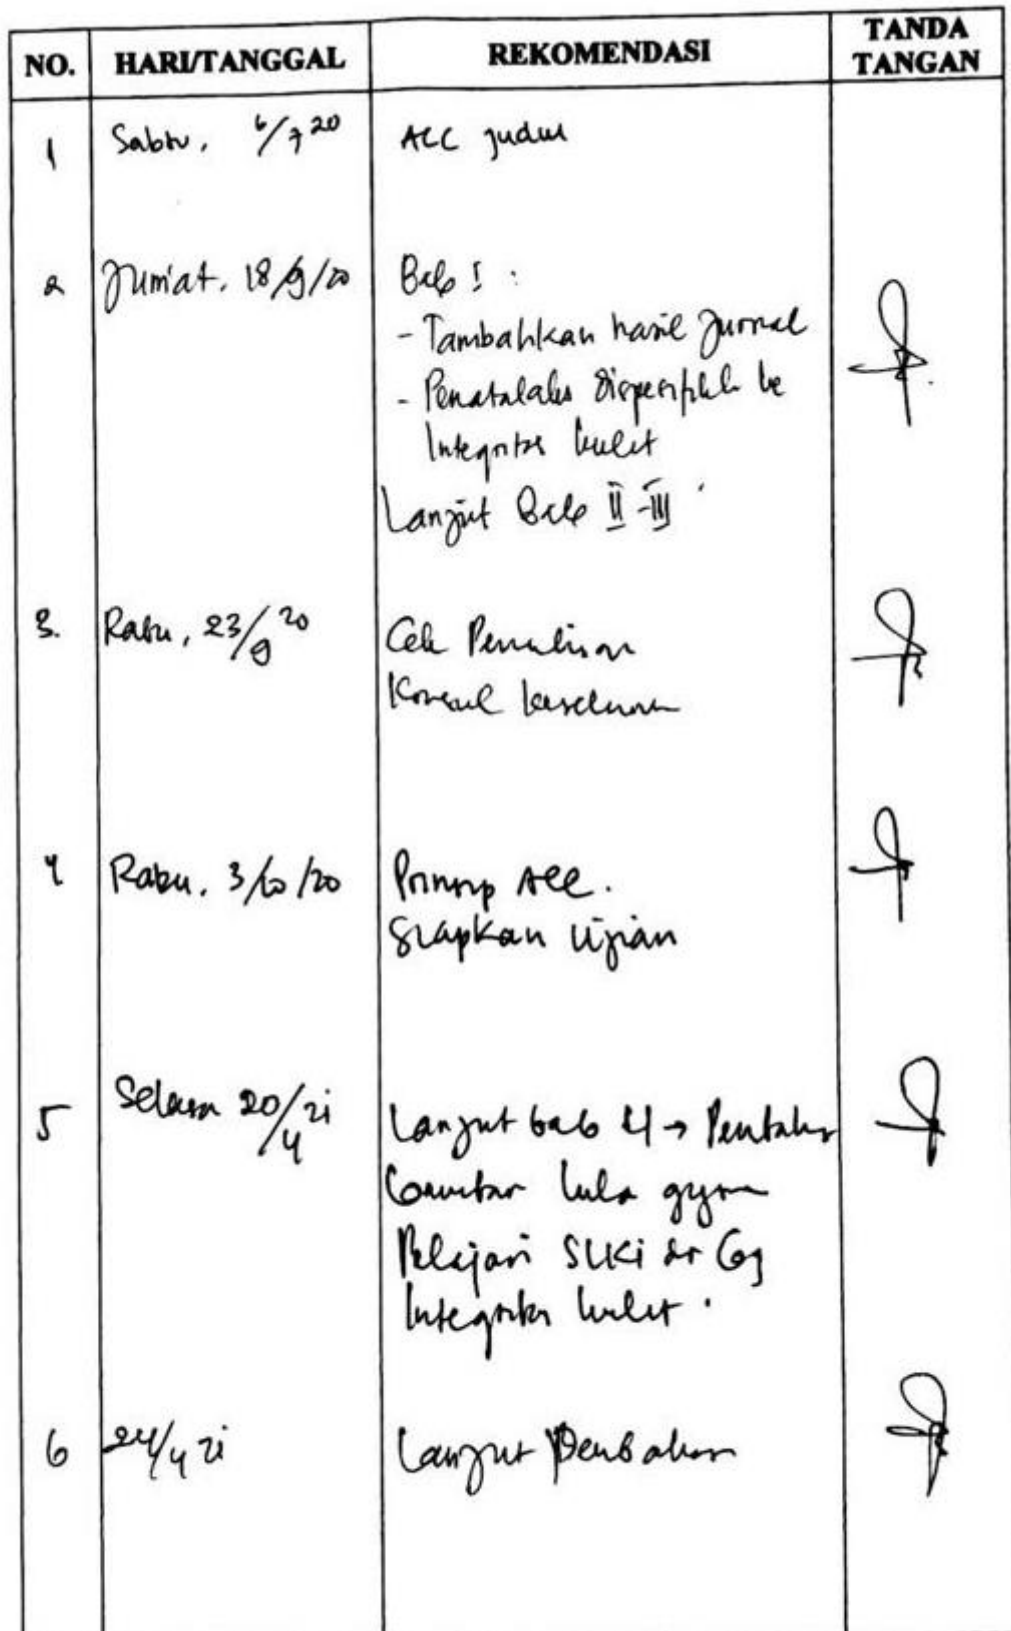 NO. HARI/TANGGAL REKOMENDASI TANDA TANGAN
1 Sabtu, 6/7 20 ACC judul
2 Jum'at, 18/9/20 Bab I :
- Tambahkan hasil Jurnal
- Penatalaks dispesifikk ke
Integritas kulit
Lanjut Bab II - III
3. Rabu, 23/9 20 Cek Penulisan
Konsul keseluruhan
4 Rabu, 3/10/20 Prinsip ACC.
Siapkan Ujian
5 Selasa 20/4 21 Lanjut bab 4 →
luka
Pelajari SLKI
Integritas kulit.
6 24/4 21 Lanjut Pembahasan